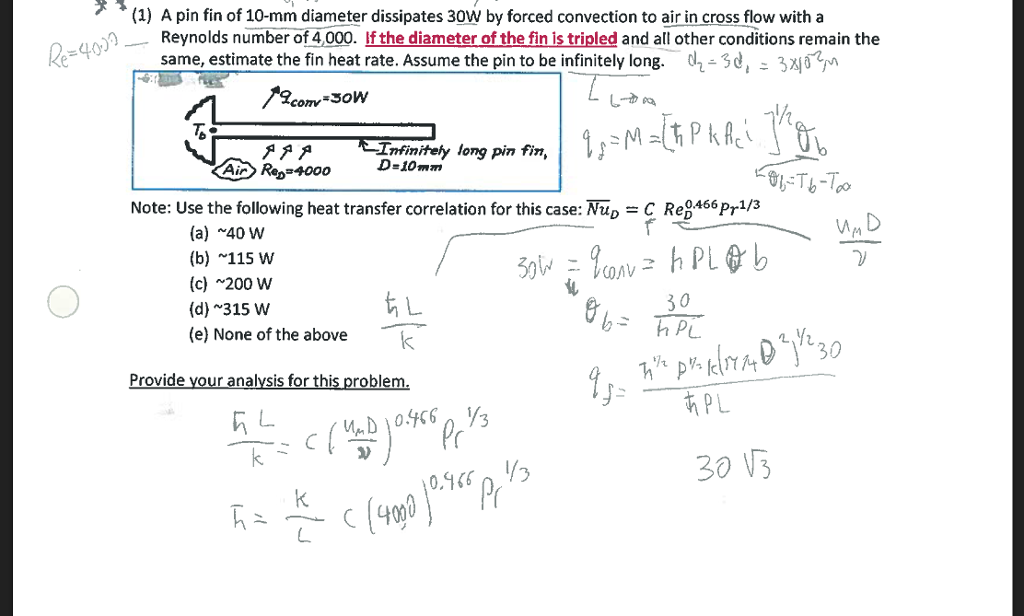 (1) A pin fin of 10-mm diameter dissipates 30W by forced convection to air in cross flow with a
Re=4000
Reynolds number of 4,000. If the diameter of the fin is tripled and all other conditions remain the
same, estimate the fin heat rate. Assume the pin to be infinitely long. d₂ = 3d, = 3x10⁻²m
q conv = 30W
L L→∞
T_b
Infinitely long pin fin,
D=10mm
Air Re_D=4000
q_f = M = [h̄ P k A_c]^1/2 θ_b
θ_b = T_b - T∞
Note: Use the following heat transfer correlation for this case: N̅u̅_D = C Re_D^0.466 Pr^1/3
(a) ~40 W
u_M D / ν
(b) ~115 W
30W = q_conv = h PL θ b
(c) ~200 W
(d) ~315 W
h̄ L / k
θ_b = 30 / h PL
(e) None of the above
q_f = h̄^1/2 P^1/2 k(π/4 D²)^1/2 30 / h̄ PL
Provide your analysis for this problem.
h̄ L / k = C (u_M D / ν)^0.466 Pr^1/3
30 √3
h̄ = k / L C (4000)^0.466 Pr^1/3